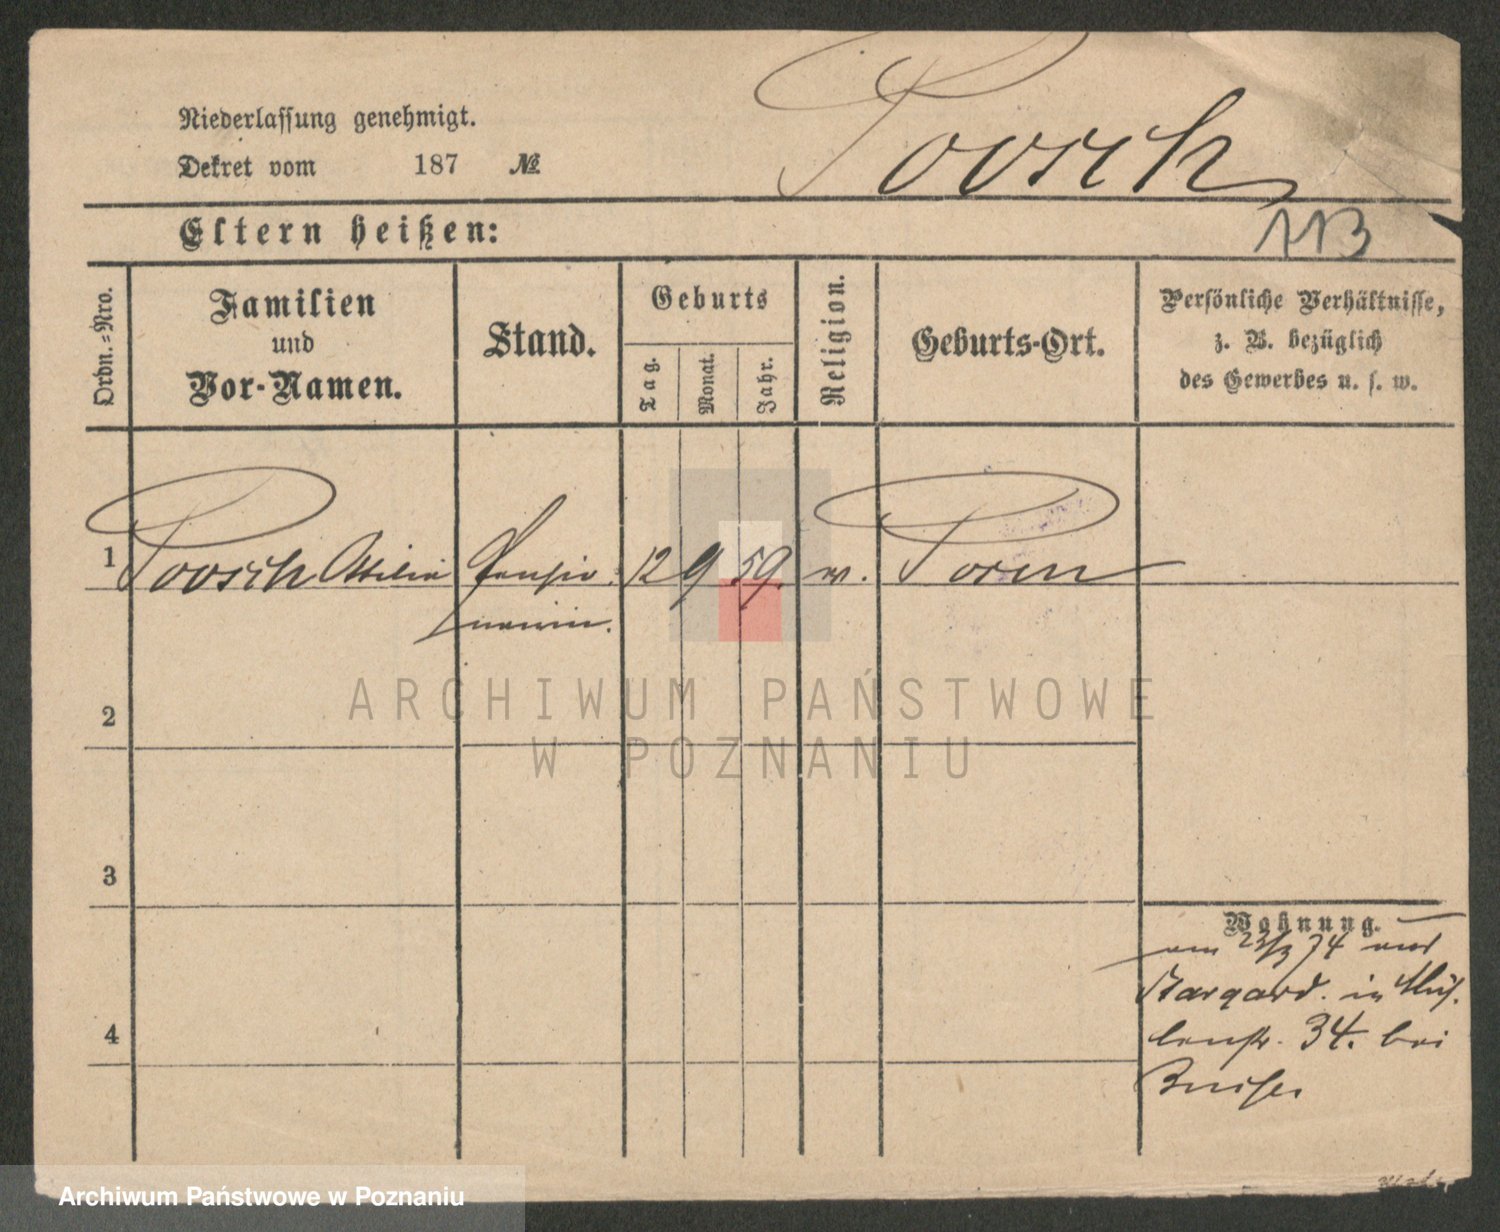 Niederlassung genehmigt.
Poosch
Dekret vom 187 №
Eltern heißen:
113
Ordn.=Nro.
Familien
und
Vor-Namen.
Stand.
Geburts
Tag.
Monat.
Jahr.
Religion.
Geburts-Ort.
Persönliche Verhältnisse,
z. B. bezüglich
des Gewerbes u. s. w.
1 Poosch Ottilie Pensio- 12 9 59. ev. Posen
närin.
ARCHIWUM PAŃSTWOWE
W POZNANIU
2
3
4
Wohnung.
am 23/3 74 aus
Stargard. in Müh-
lenstr. 34. bei
Archiwum Państwowe w Poznaniu